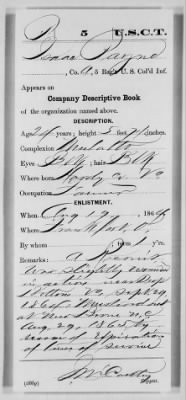 P 5 U.S.C.T.
Isaac Payne
, Co. A, 5 Reg't U. S. Col'd Inf.
Appears on
Company Descriptive Book
of the organization named above.
DESCRIPTION.
Age 24 years; height 5 feet inches.
Complexion Mulatto
Eyes Blk; hair Blk
Where born Va
Occupation Farmer
ENLISTMENT.
When Aug 19, 186
Where Frankfort O.
By whom ; term y'rs.
Remarks: A
Was slightly wounded
in action near Deep
Bottom Va Sept 29
1864 Mustered out
at New Berne N.C.
Aug. 29, 1865 by
reason of expiration
of term of service
McCarthy
(383g) Copyist.